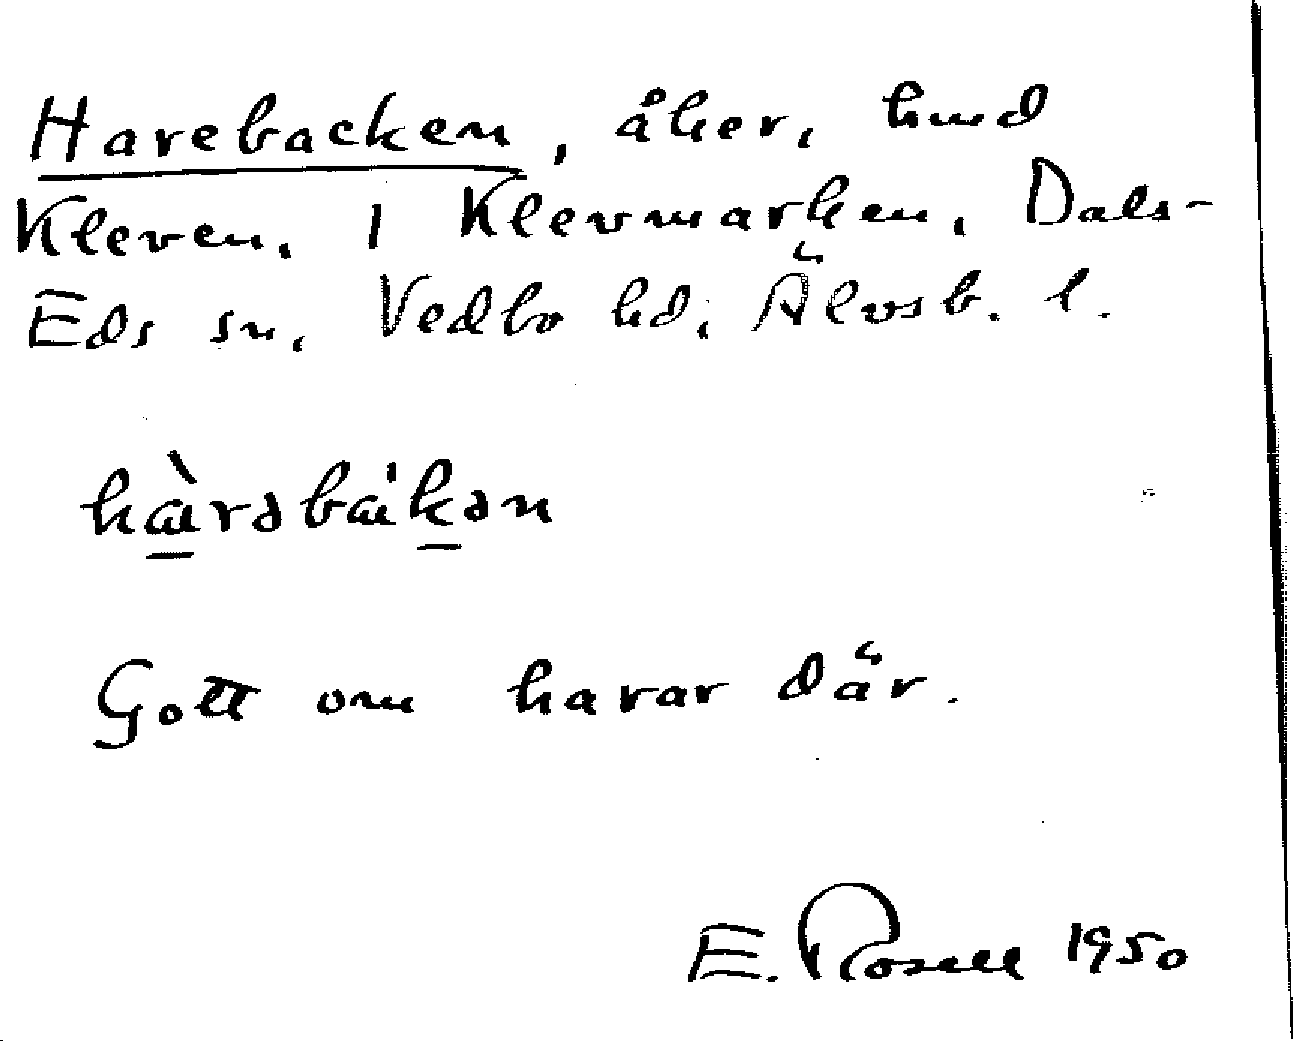 Harebacken, åker, hmd
Kleven, 1 Klevmarken, Dals-
Eds sn, Vedbo hd, Älvsb. l.
hàrəbákən
Gott om harar där.
E. Rosell 1950